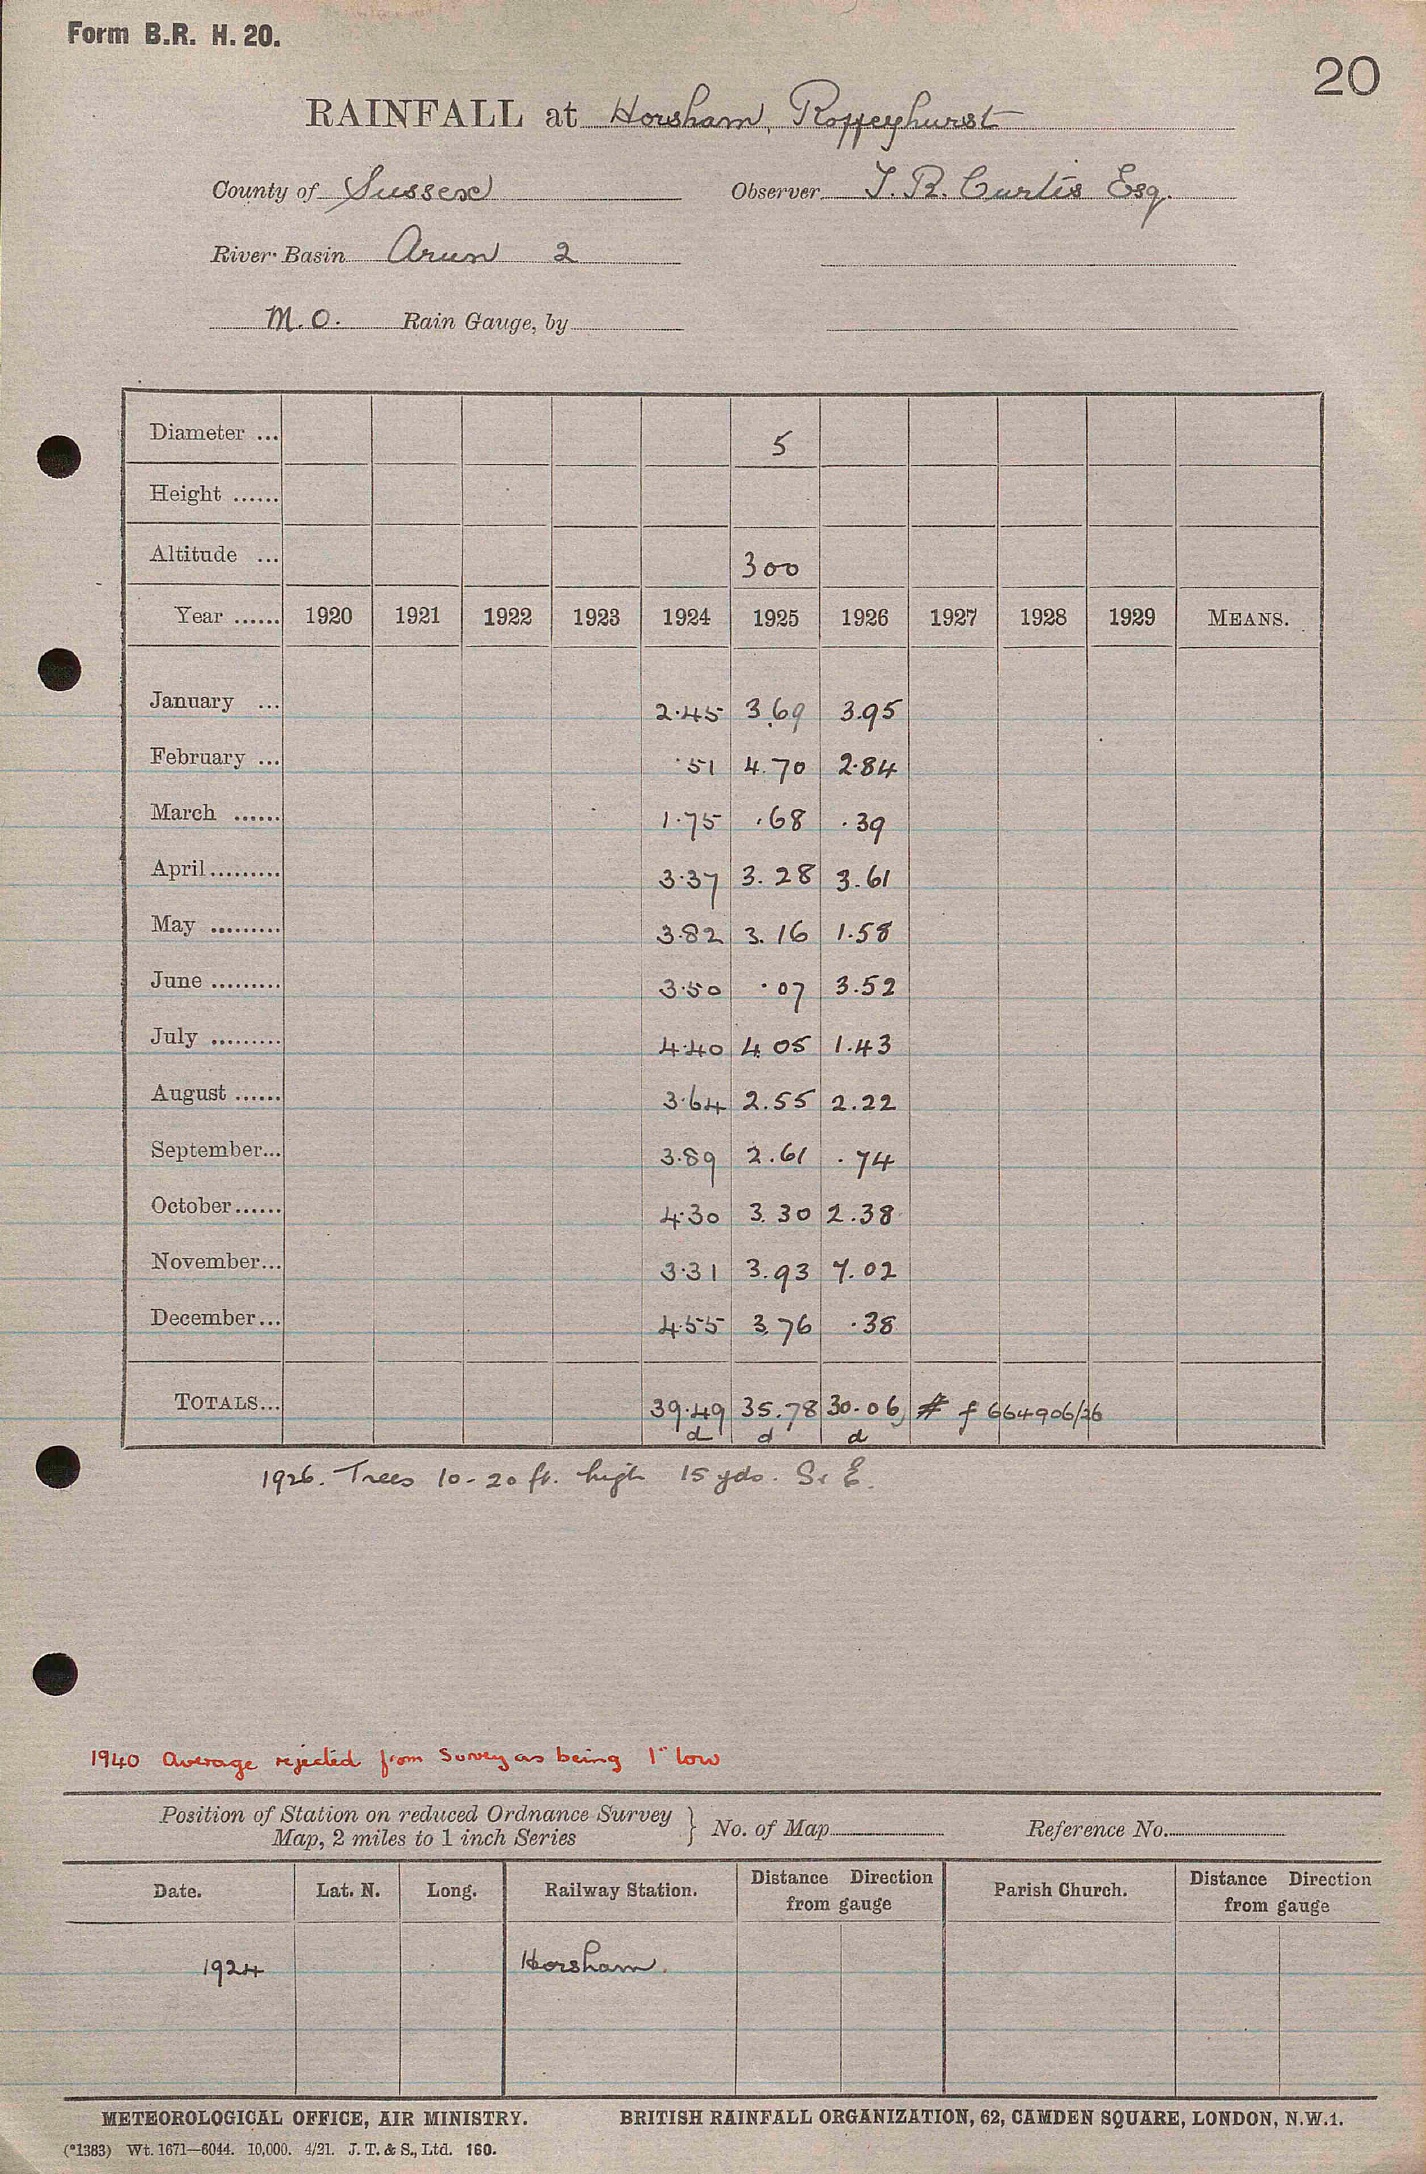 Form B.R. H. 20.
20
RAINFALL at Horsham, Roffeyhurst
County of Sussex Observer T. R. Curtis Esq.
River Basin Arun 2
M.O. Rain Gauge, by
Diameter ... 5
Height ......
Altitude ... 300
Year ...... 1920 1921 1922 1923 1924 1925 1926 1927 1928 1929 MEANS.
January ... 2.45 3.69 3.95
February ... .51 4.70 2.84
March ...... 1.75 .68 .39
April ......... 3.37 3.28 3.61
May ......... 3.82 3.16 1.58
June ......... 3.50 .07 3.52
July ......... 4.40 4.05 1.43
August ...... 3.64 2.55 2.22
September... 3.89 2.61 .74
October...... 4.30 3.30 2.38
November... 3.31 3.93 7.02
December... 4.55 3.76 .38
TOTALS... 39.49 35.78 30.06, # f 664906/26
d d d
1926. Trees 10-20 ft. high 15 yds. S. E.
1940 Average rejected from Survey as being 1" low
Position of Station on reduced Ordnance Survey
Map, 2 miles to 1 inch Series } No. of Map Reference No.
Date. Lat. N. Long. Railway Station. Distance Direction from gauge Parish Church. Distance Direction from gauge
1924 Horsham.
METEOROLOGICAL OFFICE, AIR MINISTRY. BRITISH RAINFALL ORGANIZATION, 62, CAMDEN SQUARE, LONDON, N.W.1.
(*1383) Wt. 1671—6044. 10,000. 4/21. J. T. & S., Ltd. 160.